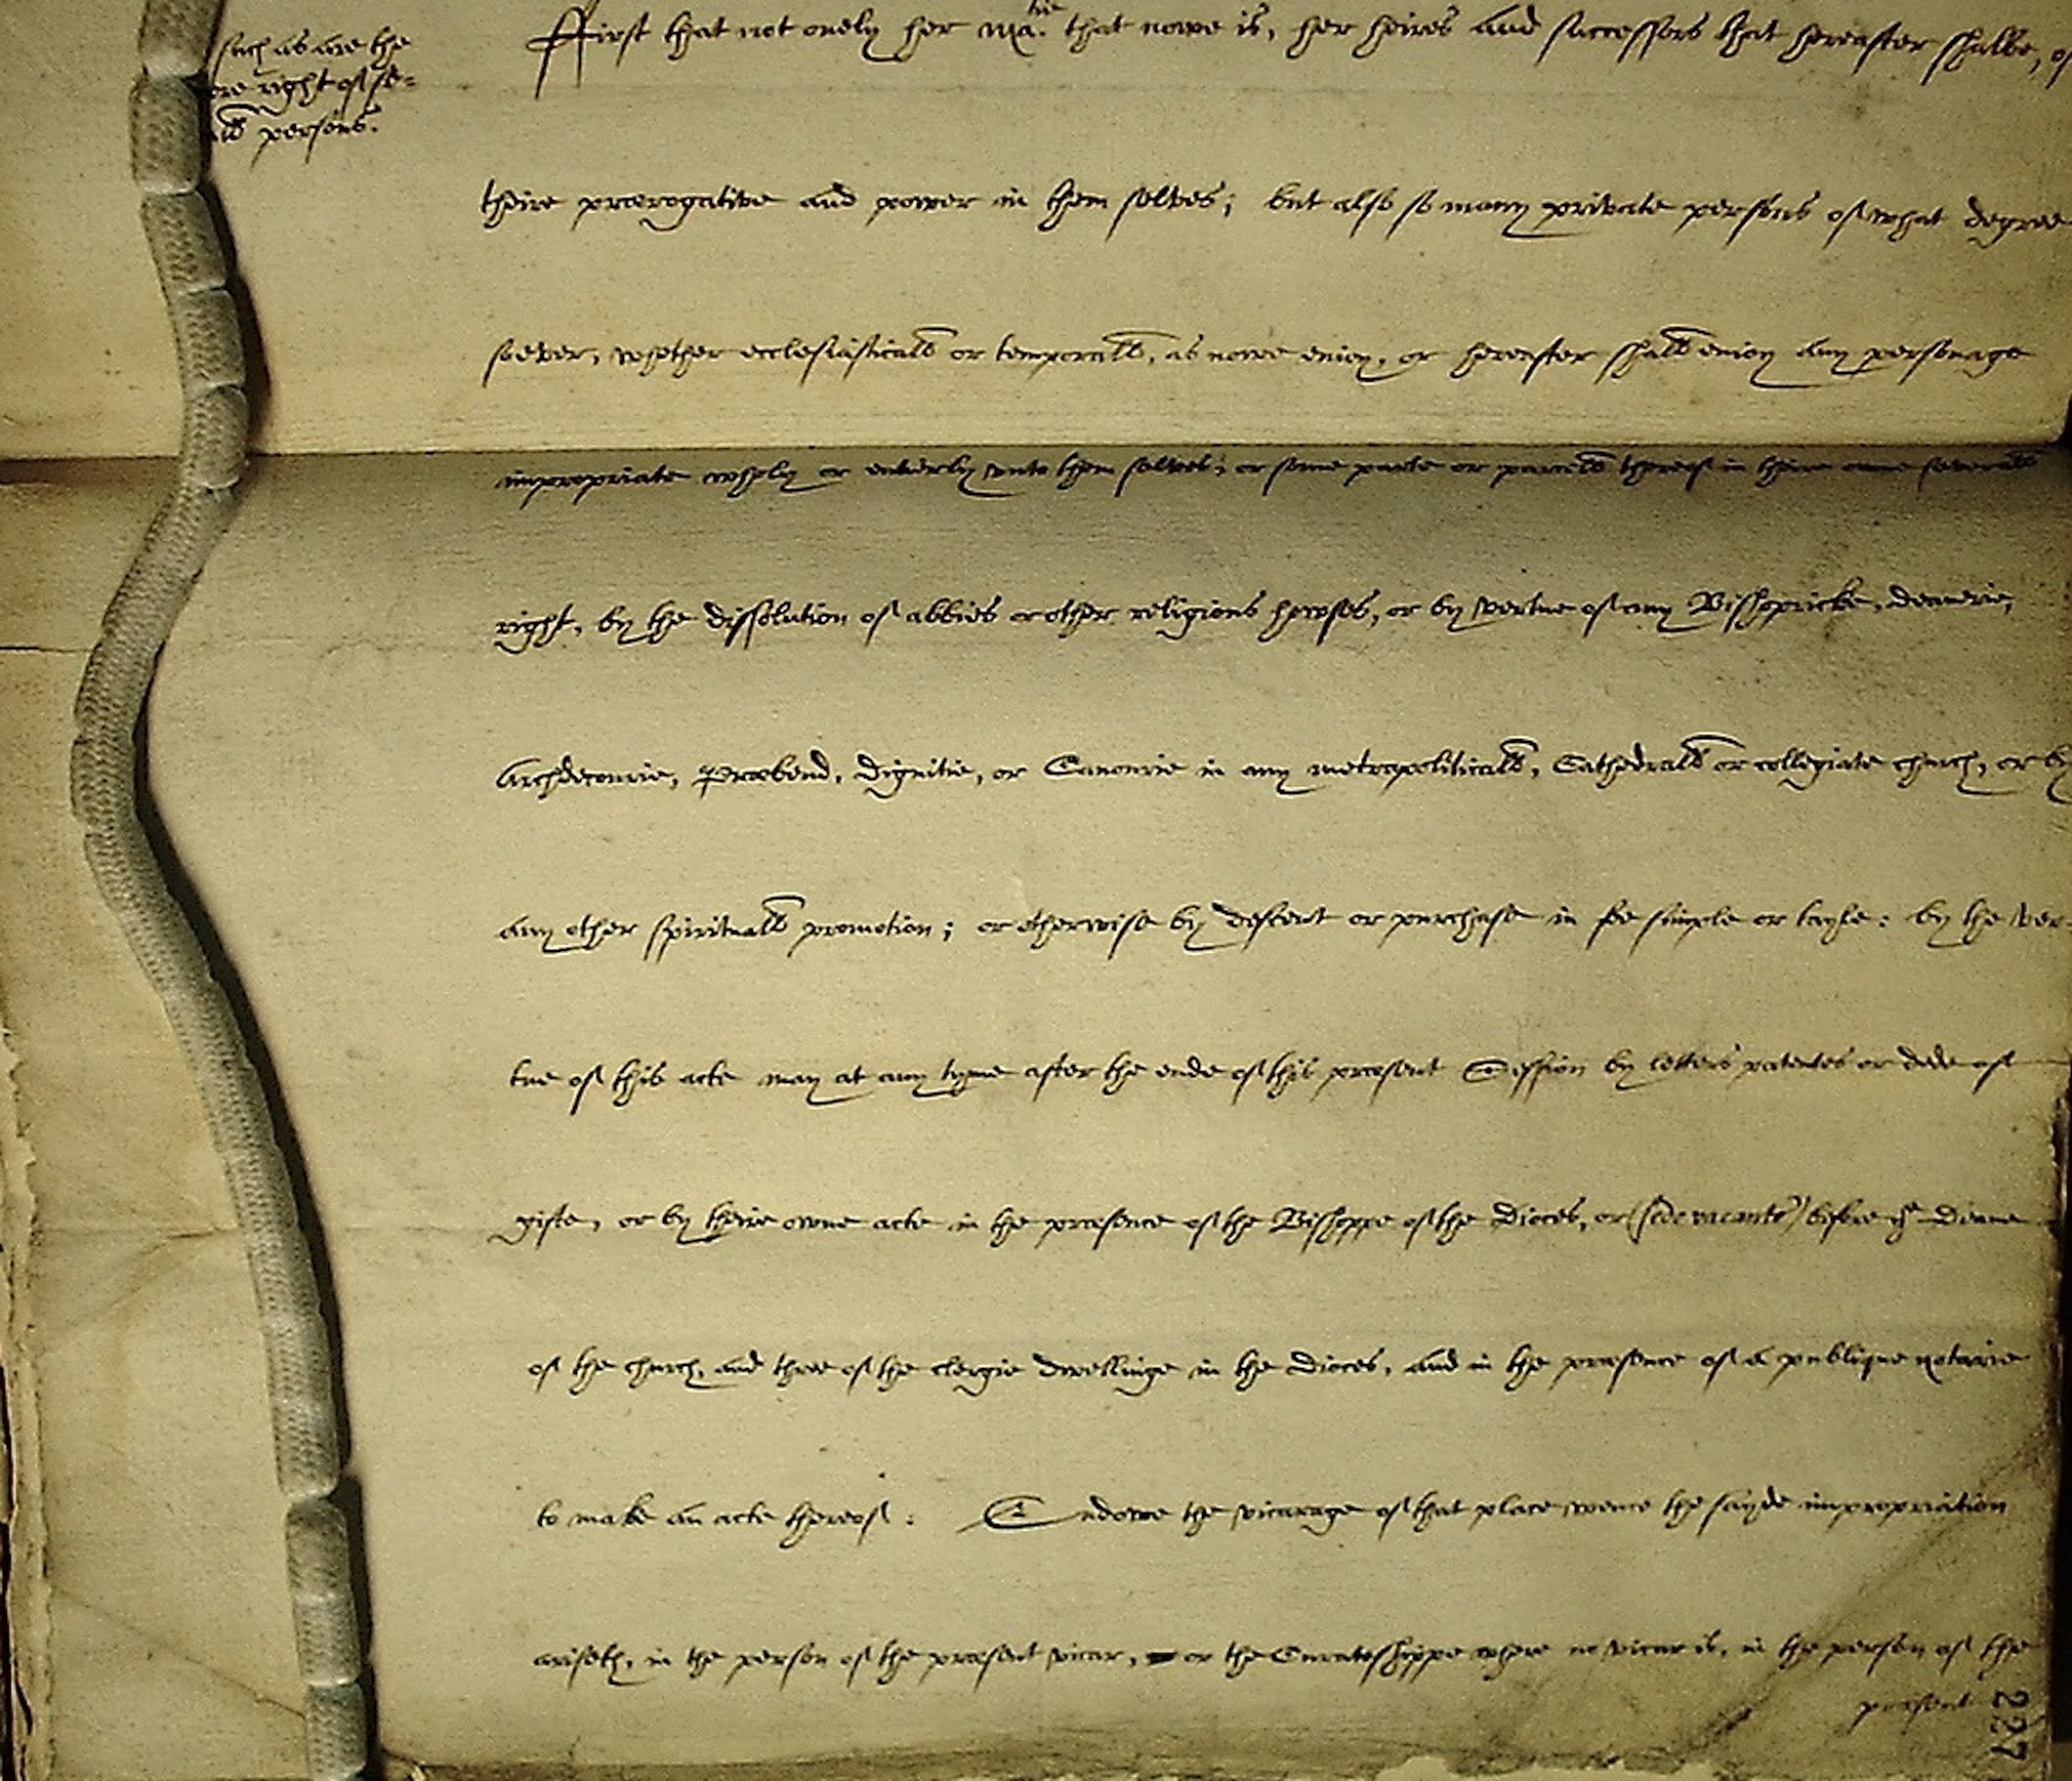 such as are the
mere right of se-
all persons.
First that not onely her Ma.tie that nowe is, her heires and successors that hereafter shalbe, of
theire prærogative and power in them selves; but also so many private persons of what degree
soever, whether ecclesiasticall or temporall, as nowe enioy, or hereafter shall enioy any personage
impropriate wholy or entierly unto them selves; or some parte or parcell thereof in theire owne severall
right, by the dissolution of abbies or other religious howses, or by vertue of any Bishopricke, deanerie,
Archdeconrie, Præbend, dignitie, or Canonrie in any metropoliticall, Cathedrall or collegiate church, or by
any other spirituall promotion; or otherwise by descent or purchase in fee simple or tayle: by the ver-
tue of this acte may at any tyme after the ende of this præsent Session by letters patentes or dede of
gifte, or by theire owne acte in the præsence of the Bishoppe of the dioces, or (sede vacante) before ye Deane
of the church, and three of the clergie dwellinge in the dioces, and in the præsence of a publique notarie
to make an acte thereof: Endowe the vicarage of that place whence the sayde impropriation
ariseth, in the person of the præsent vicar, or the Curateshippe where no vicar is, in the person of the
præsent
227